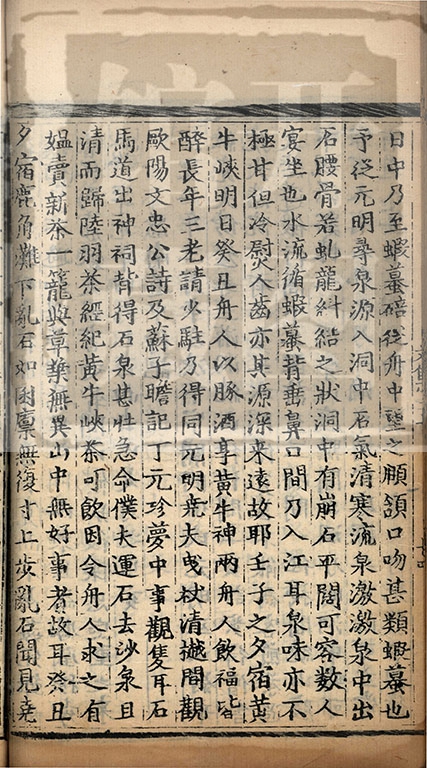 日中乃至蝦蟇碚從舟中望之頤頷口吻甚類蝦蟇也
予從元明尋泉源入洞中石氣清寒流泉激激泉中出
石腰骨若虬龍糾結之狀洞中有崩石平闊可容數人
宴坐也水流循蝦蟇背垂鼻口間乃入江耳泉味亦不
極甘但冷熨人齒亦其源深來遠故耶壬子之夕宿黃
牛峽明日癸丑舟人以豚酒享黃牛神兩舟人飲福皆
醉長年三老請少駐乃得同元明堯夫曳杖清樾間觀
歐陽文忠公詩及蘇子瞻記丁元珍夢中事觀隻耳石
馬道出神祠背得石泉甚壯急命僕夫運石去沙泉且
清而歸陸羽茶經紀黃牛峽茶可飲因令舟人求之有
媼賣新茶一籠與草葉無異山中無好事者故耳癸丑
夕宿鹿角灘下亂石如囷廩無復寸土步亂石間見堯